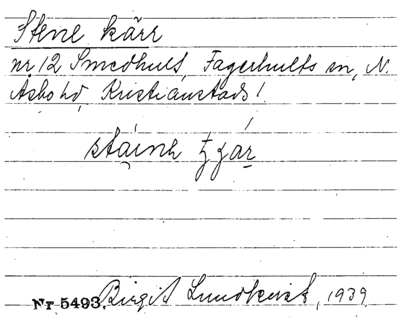 Stene kärr
nr 12 Smedhult, Fagerhults sn, N.
Asbo hd, Kristianstads l.
stáine ʈjár
Nr 5493. Birgit Lundkvist, 1939